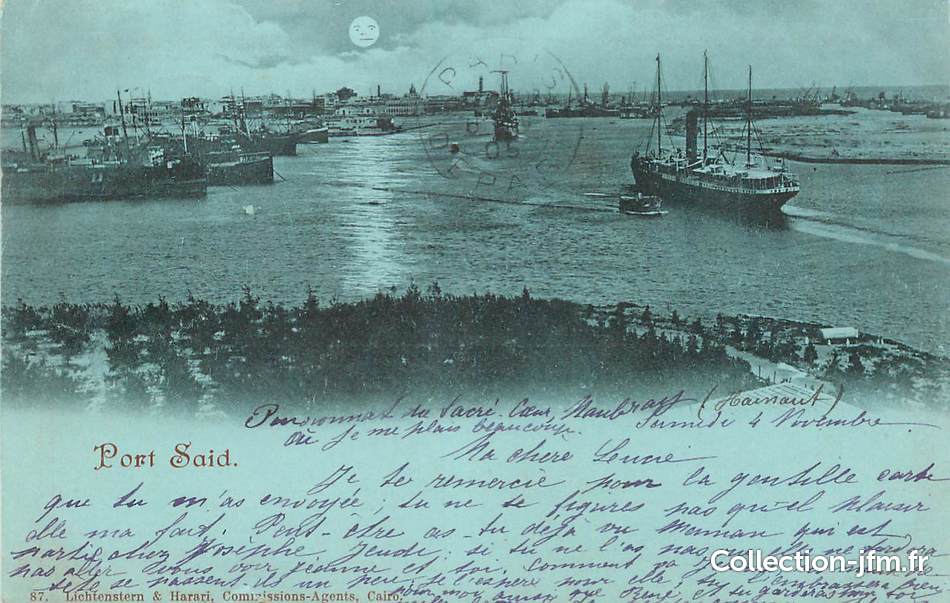 Pensionnat du Sacré-Cœur, Maubray (Hainaut)
où je me plais beaucoup. Samedi 4 Novembre
Ma chère Lucie
Port Said.
Je te remercie pour la gentille carte
que tu m'as envoyée; tu ne te figures pas quel plaisir
elle ma fait. Peut-être as-tu déjà vu Maman qui est
partie chez Josèphe, Jeudi; si tu ne l'as pas
pas aller vous voir Jeanne et toi. Comment
se passent-ils un peu, je l'espère pour elle tu l'embrasseras
pour moi ainsi que René et tu garderas pour toi
87. Lichtenstern & Harari, Commissions-Agents, Cairo.
Collection-jfm.fr